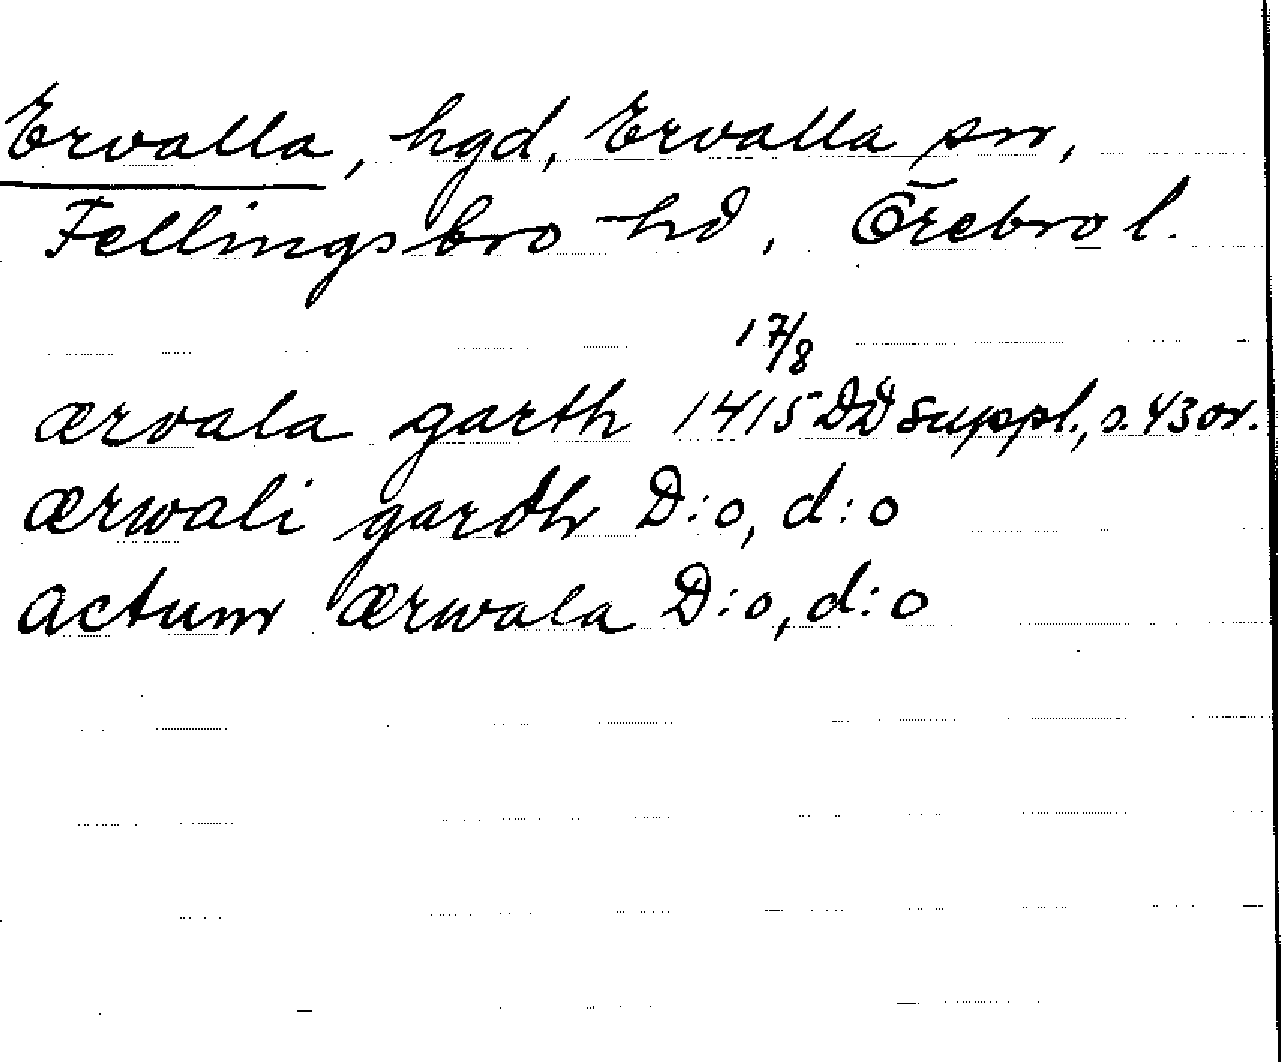 Ervalla, hgd, Ervalla sn,
Fellingsbro hd, Örebro l.
17/8
ærvala garth 1415 DD suppl., s. 43 or.
ærwali gardh D:o, d:o
actum ærwala D:o, d:o